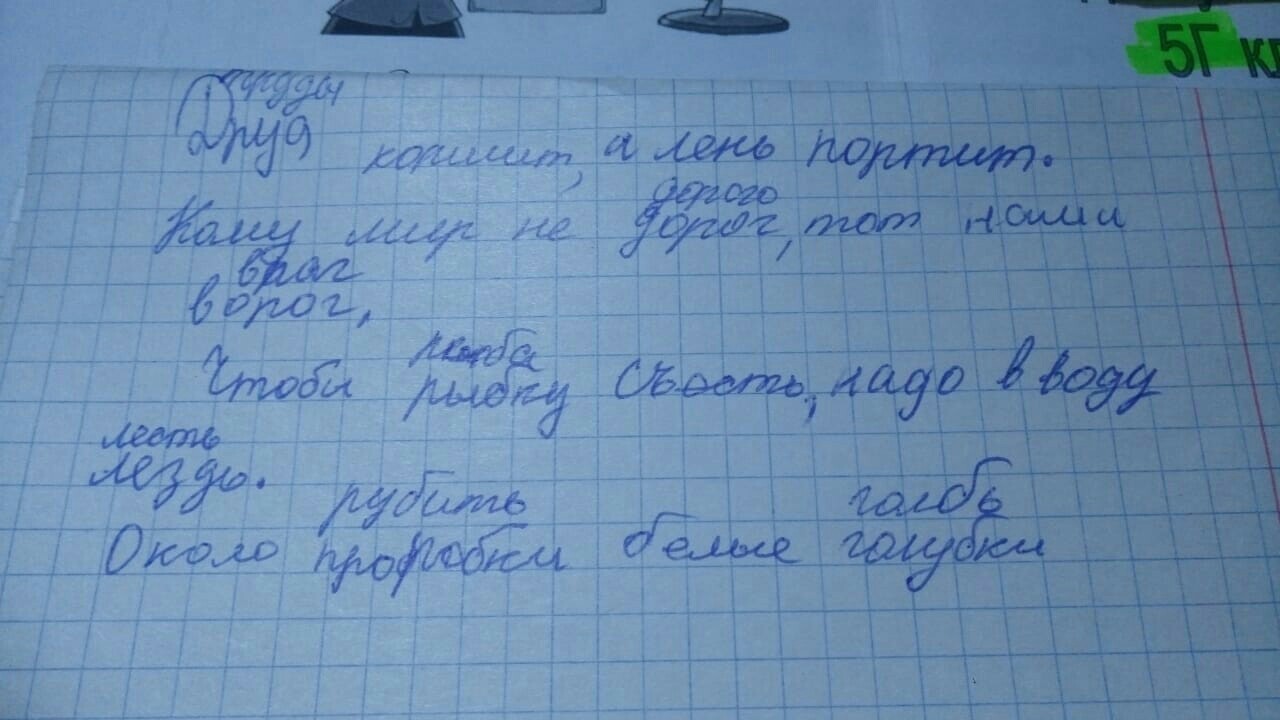 5Г кл
труды
Друд кормит, а лень портит.
дорого
Кому мир не дорог, тот нами
враг
ворог,
рыба
Чтоби рыбку съесть, надо в воду
лесть
лездь.
рубить голбь
Около прорубки белые голубки